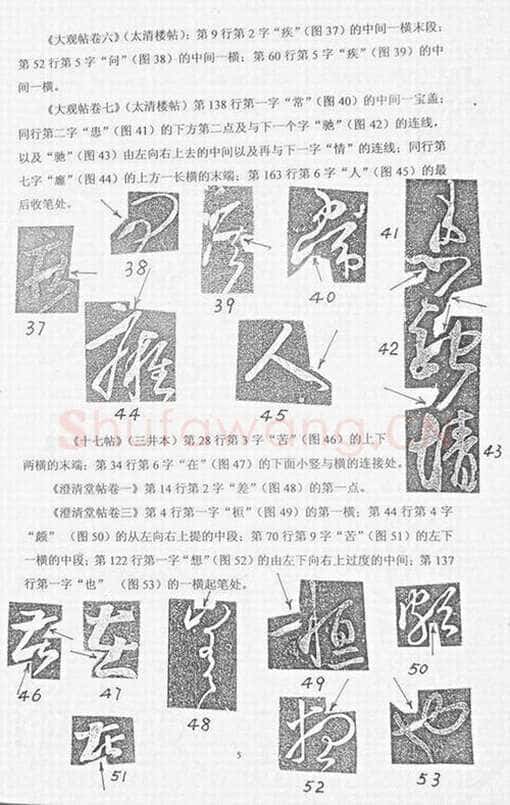 《大观帖卷六》(太清楼帖)：第9行第2字“疾”(图37)的中间一横末段；
第52行第5字“问”(图38)的中间一横；第60行第5字“疾”(图39)的中
间一横。
《大观帖卷七》(太清楼帖)第138行第一字“常”(图40)的中间一宝盖；
同行第二字“患”(图41)的下方第二点及与下一个字“驰”(图42)的连线，
以及“驰”(图43)由左向右上去的中间以及再与下一字“情”的连线；同行第
七字“廱”(图44)的上方一长横的末端；第163行第6字“人”(图45)的最
后收笔处。
37
38
39
40
41
42
43
44
45
Shufawang.CN
《十七帖》(三井本)第28行第3字“苦”(图46)的上下
两横的末端；第34行第6字“在”(图47)的下面小竖与横的连接处。
《澄清堂帖卷一》第14行第2字“差”(图48)的第一点。
《澄清堂帖卷三》第4行第一字“桓”(图49)的第一横；第44行第4字
“颇” (图50)的从左向右上提的中段；第70行第9字“苦”(图51)的左下
一横的中段；第122行第一字“想”(图52)的由左下向右上过度的中间；第137
行第一字“也” (图53)的一横起笔处。
46
47
48
49
50
51
52
53
5